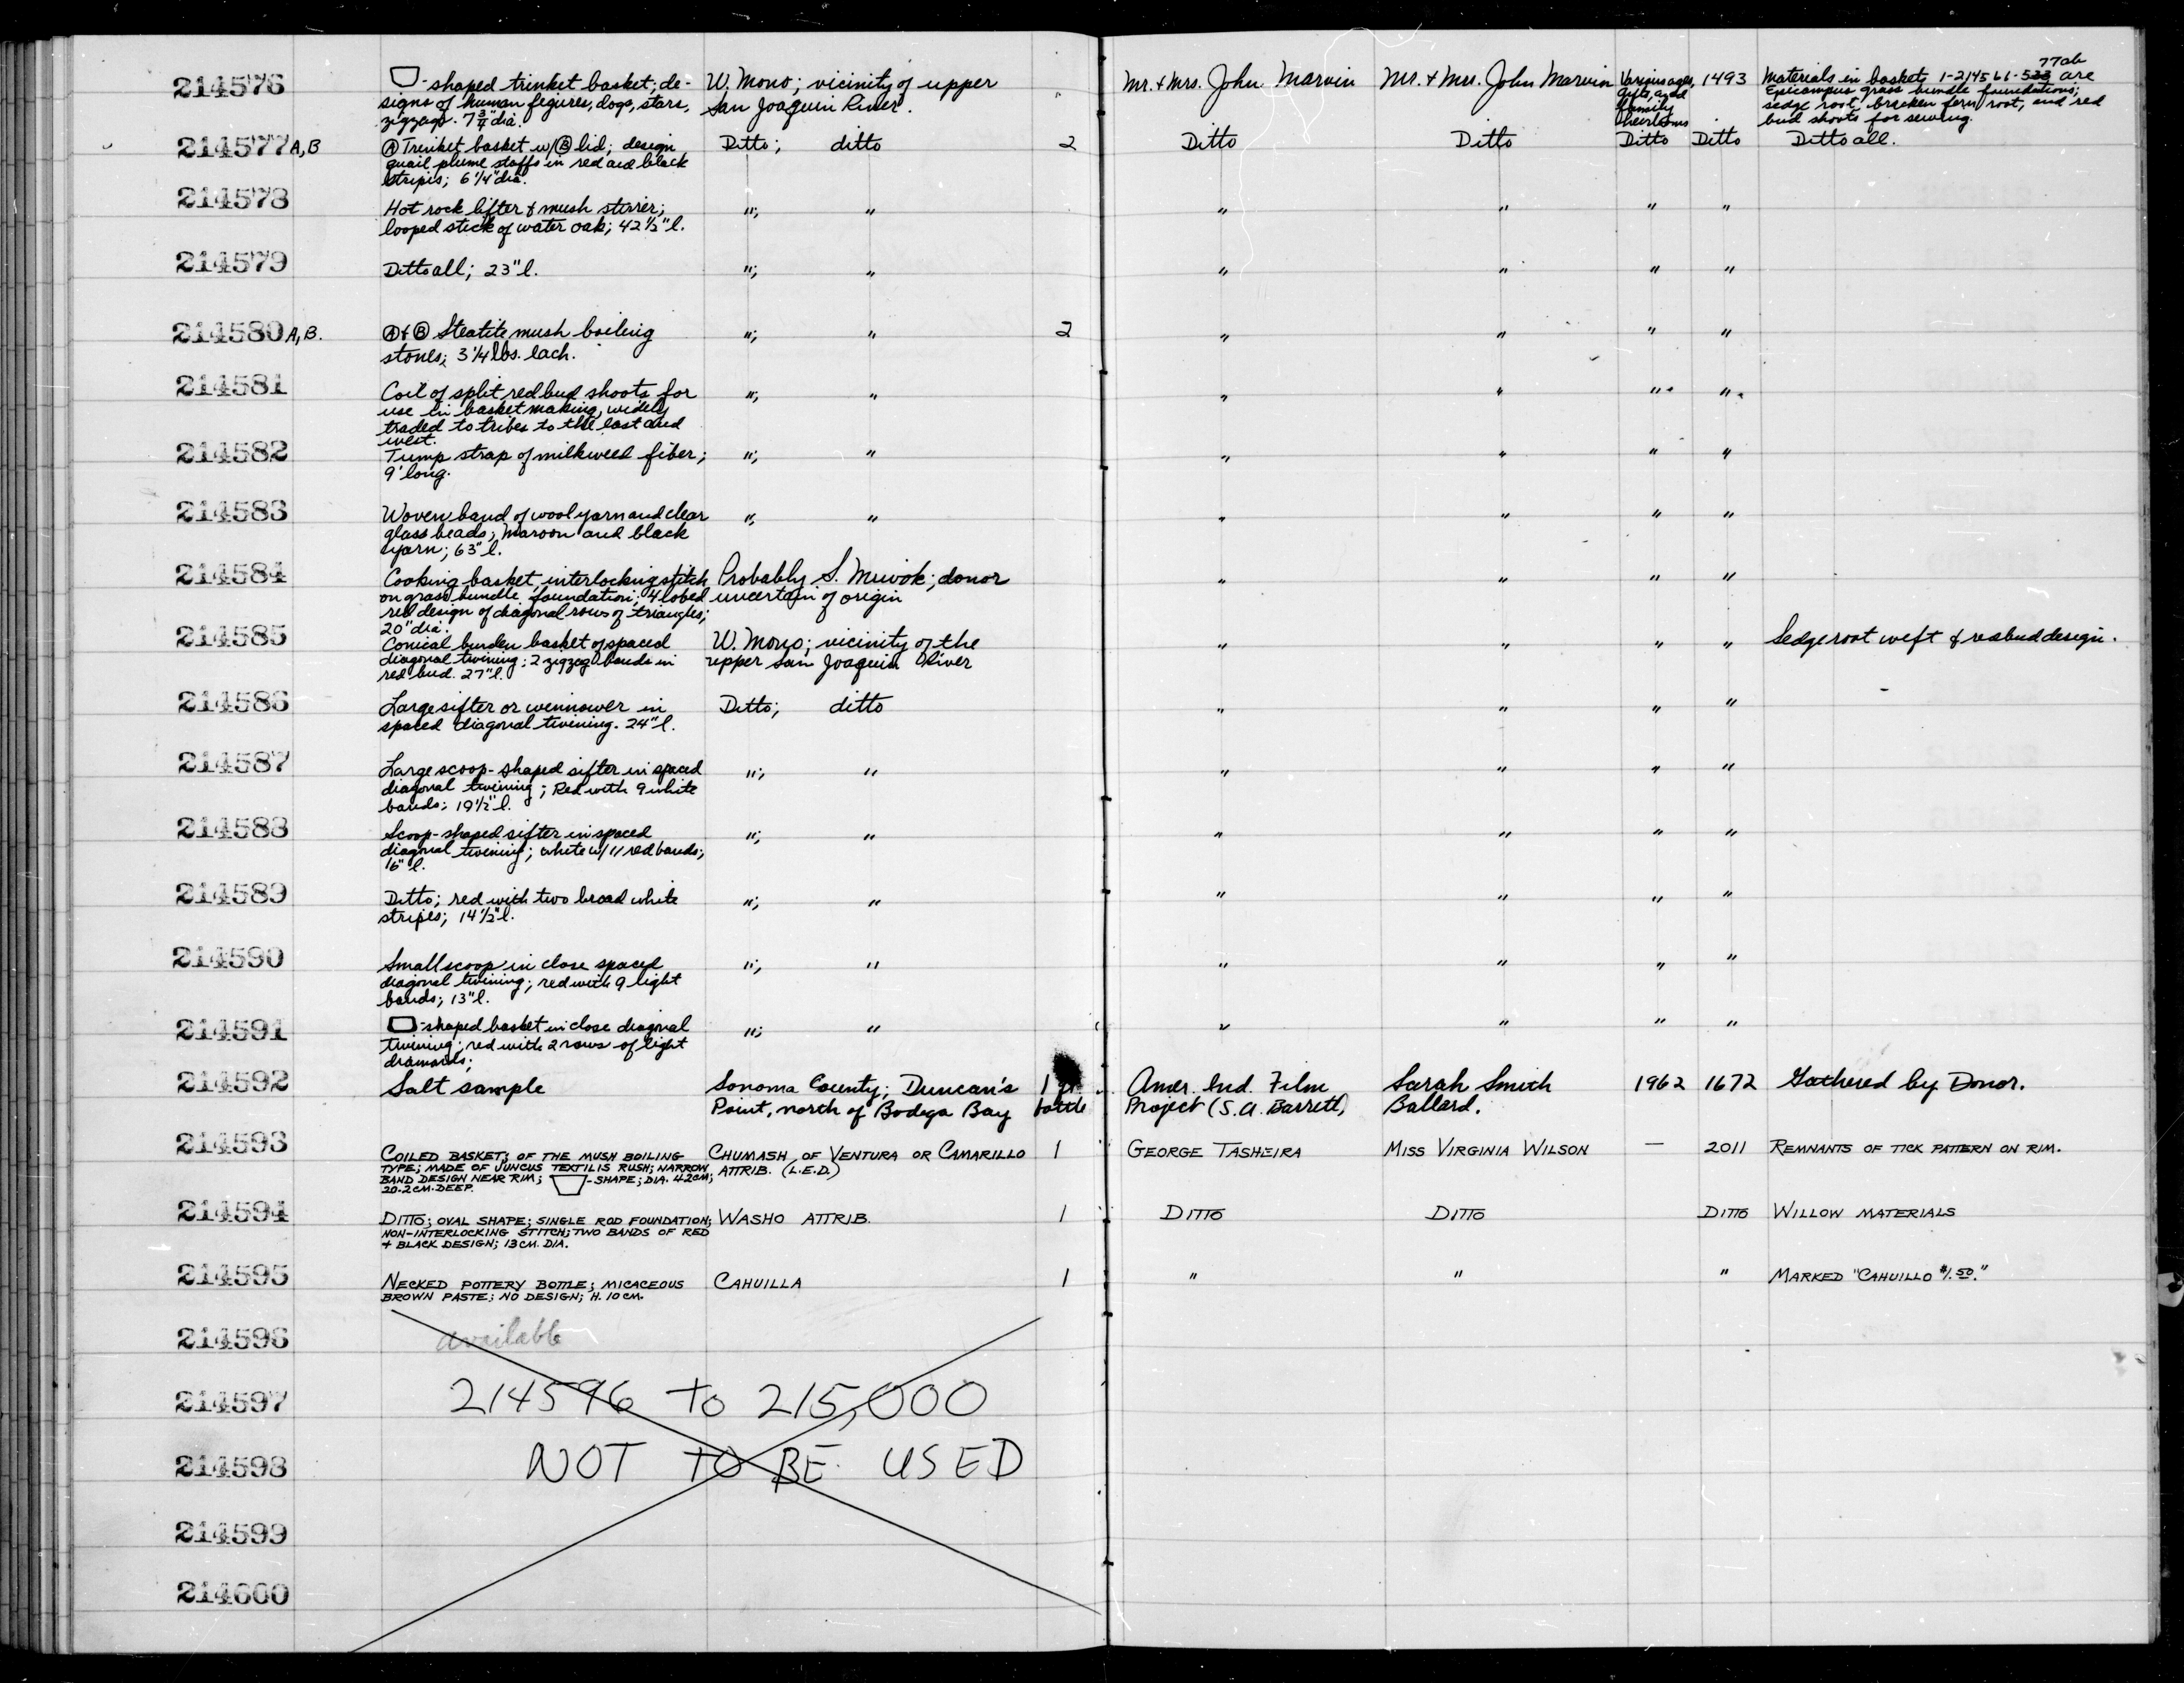 214576 -shaped trinket basket; de- W. Mono; vicinity of upper Mr. & Mrs. John Marvin Mr. & Mrs. John Marvin Various ages, 1493 Materials in baskets 1-214561-533 are 77ab
signs of human figures, dogs, stars, San Joaquin River. gifts, and Epicampus grass bundle foundations;
zigzags. 7 3/4" dia. family sedge root, bracken fern root, and red
heirlooms bud shoots for sewing.
214577 A,B Ⓐ Trinket basket w/Ⓑ lid; design Ditto; ditto 2 Ditto Ditto Ditto Ditto Ditto all.
quail plume staffs in red and black
stripes; 6 1/4" dia.
214578 Hot rock lifter & mush stirrer; "; " " " " "
looped stick of water oak; 42 1/2" l.
214579 Ditto all; 23" l. "; " " " " "
214580 A,B. Ⓐ & Ⓑ Steatite mush boiling "; " 2 " " " "
stones; 3 1/4 lbs. each.
214581 Coil of split redbud shoots for "; " " " " "
use in basketmaking, widely
traded to tribes to the east and
west.
214582 Tump strap of milkweed fiber; "; " " " " "
9' long.
214583 Woven band of wool yarn and clear "; " " " " "
glass beads; maroon and black
yarn; 63" l.
214584 Cooking basket, interlocking stitch Probably S. Miwok; donor " " " "
on grass bundle foundation; 4 lobed uncertain of origin
red design of diagonal rows of triangles;
20" dia.
214585 Conical burden basket of spaced W. Mono; vicinity of the " " " " Sedge root weft & redbud design.
diagonal twining; 2 zigzag bands in upper San Joaquin River
red bud. 27" l.
214586 Large sifter or winnower in Ditto; ditto " " " "
spaced diagonal twining. 24" l.
214587 Large scoop-shaped sifter in spaced "; " " " " "
diagonal twining; Red with 9 white
bands; 19 1/2" l.
214588 Scoop-shaped sifter in spaced "; " " " " "
diagonal twining; white w/ 11 red bands;
16" l.
214589 Ditto; red with two broad white "; " " " " "
stripes; 14 1/2" l.
214590 Small scoop in close spaced "; " " " " "
diagonal twining; red with 9 light
bands; 13" l.
214591 -shaped basket in close diagonal "; " " " " "
twining; red with 2 rows of light
diamonds;
214592 Salt sample Sonoma County; Duncan's 1 Amer. Ind. Film Sarah Smith 1962 1672 Gathered by Donor.
Point, north of Bodega Bay bottle Project (S.A. Barrett) Ballard.
214593 COILED BASKET; OF THE MUSH BOILING CHUMASH OF VENTURA OR CAMARILLO 1 GEORGE TASHEIRA MISS VIRGINIA WILSON — 2011 REMNANTS OF TICK PATTERN ON RIM.
TYPE; MADE OF JUNCUS TEXTILIS RUSH; NARROW ATTRIB. (L.E.D.)
BAND DESIGN NEAR RIM; -SHAPE; DIA. 42CM;
20.2 CM. DEEP.
214594 DITTO; OVAL SHAPE; SINGLE ROD FOUNDATION; WASHO ATTRIB. 1 DITTO DITTO DITTO WILLOW MATERIALS
NON-INTERLOCKING STITCH; TWO BANDS OF RED
+ BLACK DESIGN; 13 CM. DIA.
214595 NECKED POTTERY BOTTLE; MICACEOUS CAHUILLA 1 " " " MARKED "CAHUILLO $1.50."
BROWN PASTE; NO DESIGN; H. 10 CM.
214596 available
214597 214596 TO 215,000
214598 NOT TO BE USED
214599
214600